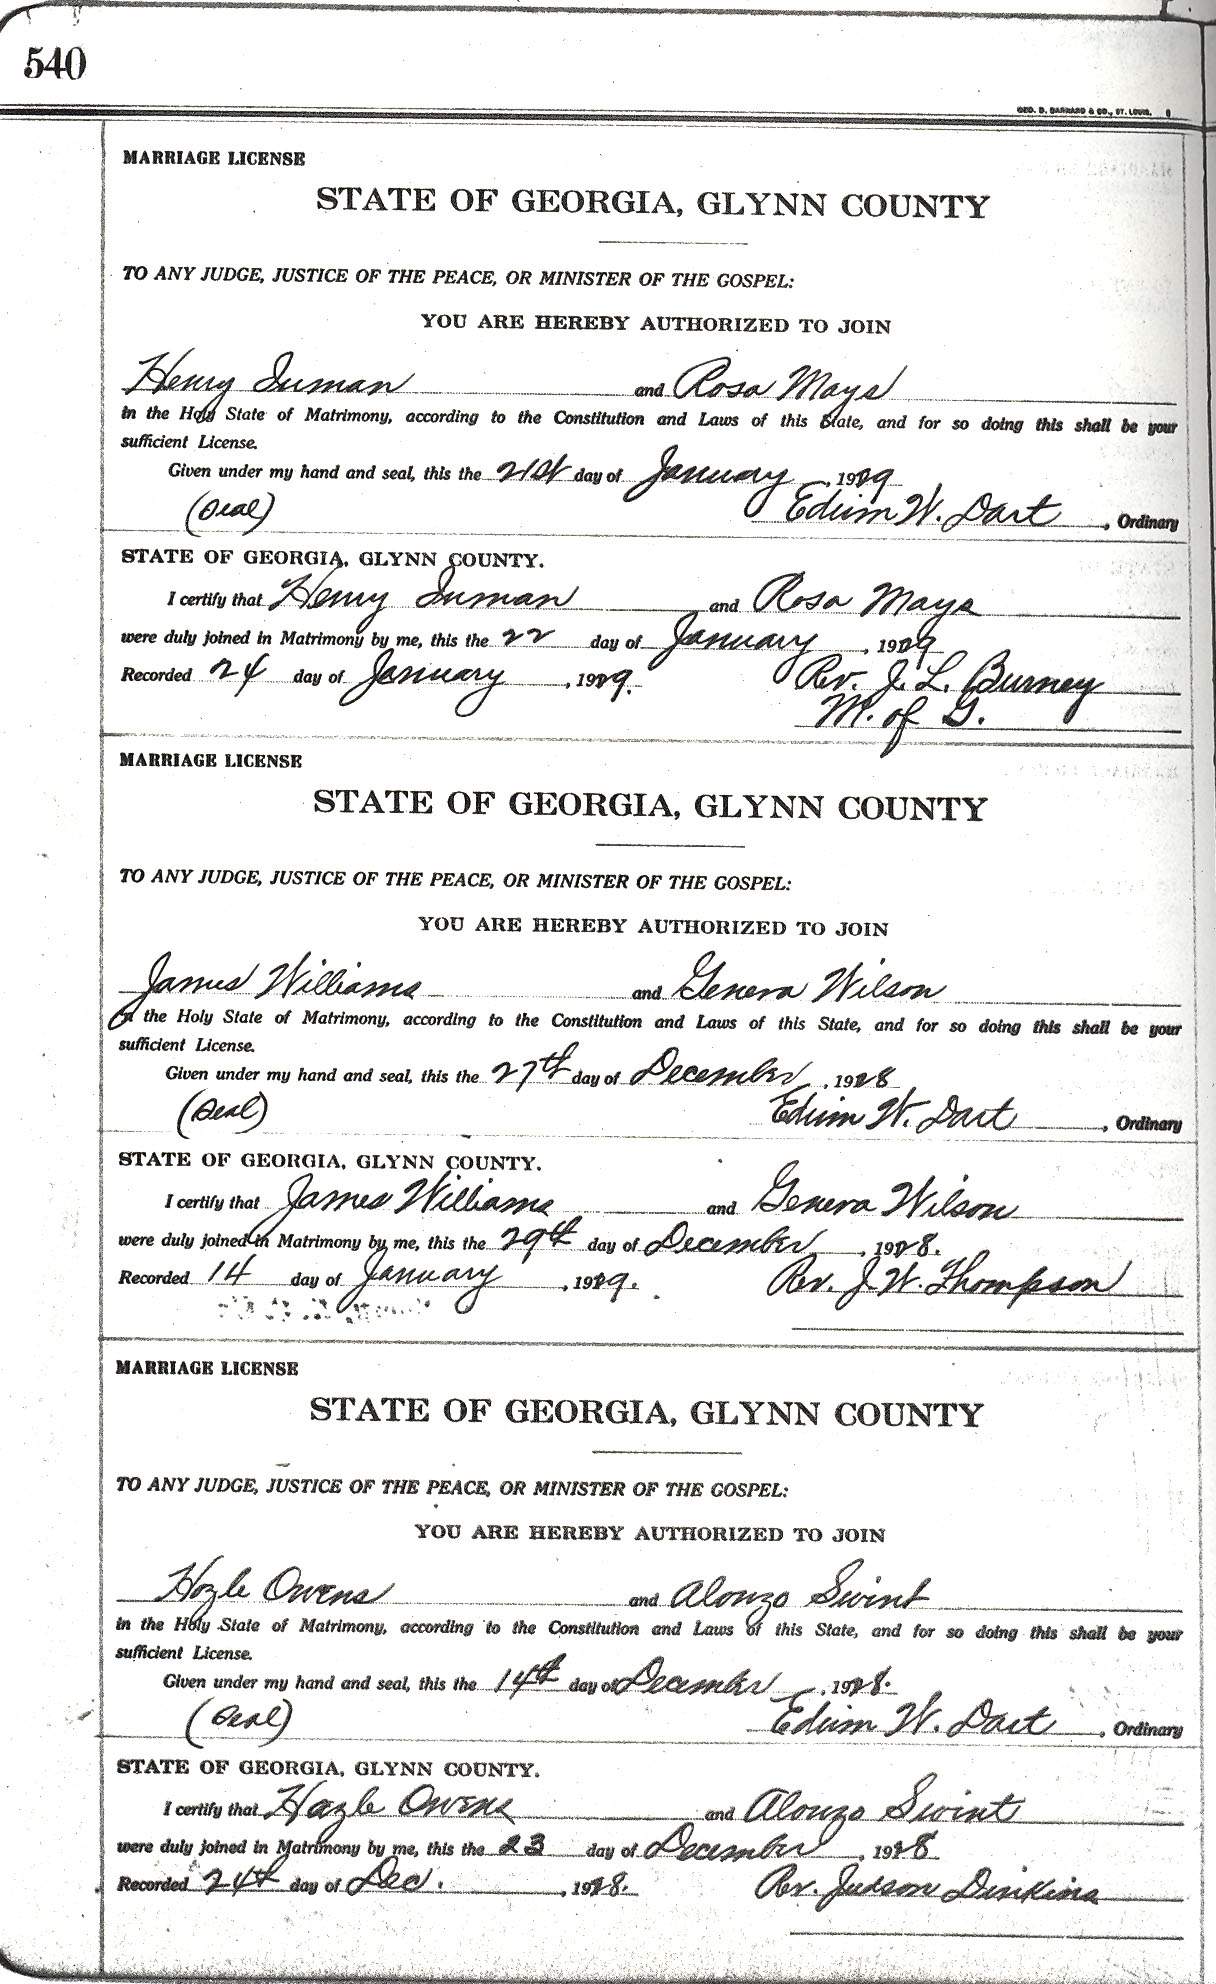 540
GEO. D. BARNARD & CO., ST. LOUIS.
MARRIAGE LICENSE
STATE OF GEORGIA, GLYNN COUNTY
TO ANY JUDGE, JUSTICE OF THE PEACE, OR MINISTER OF THE GOSPEL:
YOU ARE HEREBY AUTHORIZED TO JOIN
Henry Inman and Rosa Mays
in the Holy State of Matrimony, according to the Constitution and Laws of this State, and for so doing this shall be your
sufficient License.
Given under my hand and seal, this the 21st day of January, 1929
(Seal) Edwin W. Dart, Ordinary
STATE OF GEORGIA, GLYNN COUNTY.
I certify that Henry Inman and Rosa Mays
were duly joined in Matrimony by me, this the 22 day of January, 1929
Recorded 24 day of January, 1929. Rev. J. L. Burney
M. of G.
MARRIAGE LICENSE
STATE OF GEORGIA, GLYNN COUNTY
TO ANY JUDGE, JUSTICE OF THE PEACE, OR MINISTER OF THE GOSPEL:
YOU ARE HEREBY AUTHORIZED TO JOIN
James Williams and Geneva Wilson
in the Holy State of Matrimony, according to the Constitution and Laws of this State, and for so doing this shall be your
sufficient License.
Given under my hand and seal, this the 27th day of December, 1928
(Seal) Edwin W. Dart, Ordinary
STATE OF GEORGIA, GLYNN COUNTY.
I certify that James Williams and Geneva Wilson
were duly joined in Matrimony by me, this the 29th day of December, 1928.
Recorded 14 day of January, 1929. Rev. J. W. Thompson
MARRIAGE LICENSE
STATE OF GEORGIA, GLYNN COUNTY
TO ANY JUDGE, JUSTICE OF THE PEACE, OR MINISTER OF THE GOSPEL:
YOU ARE HEREBY AUTHORIZED TO JOIN
Hazle Owens and Alonzo Swint
in the Holy State of Matrimony, according to the Constitution and Laws of this State, and for so doing this shall be your
sufficient License.
Given under my hand and seal, this the 14th day of December, 1928.
(Seal) Edwin W. Dart, Ordinary
STATE OF GEORGIA, GLYNN COUNTY.
I certify that Hazle Owens and Alonzo Swint
were duly joined in Matrimony by me, this the 23 day of December, 1928
Recorded 24th day of Dec., 1928. Rev. Judson Dinkins